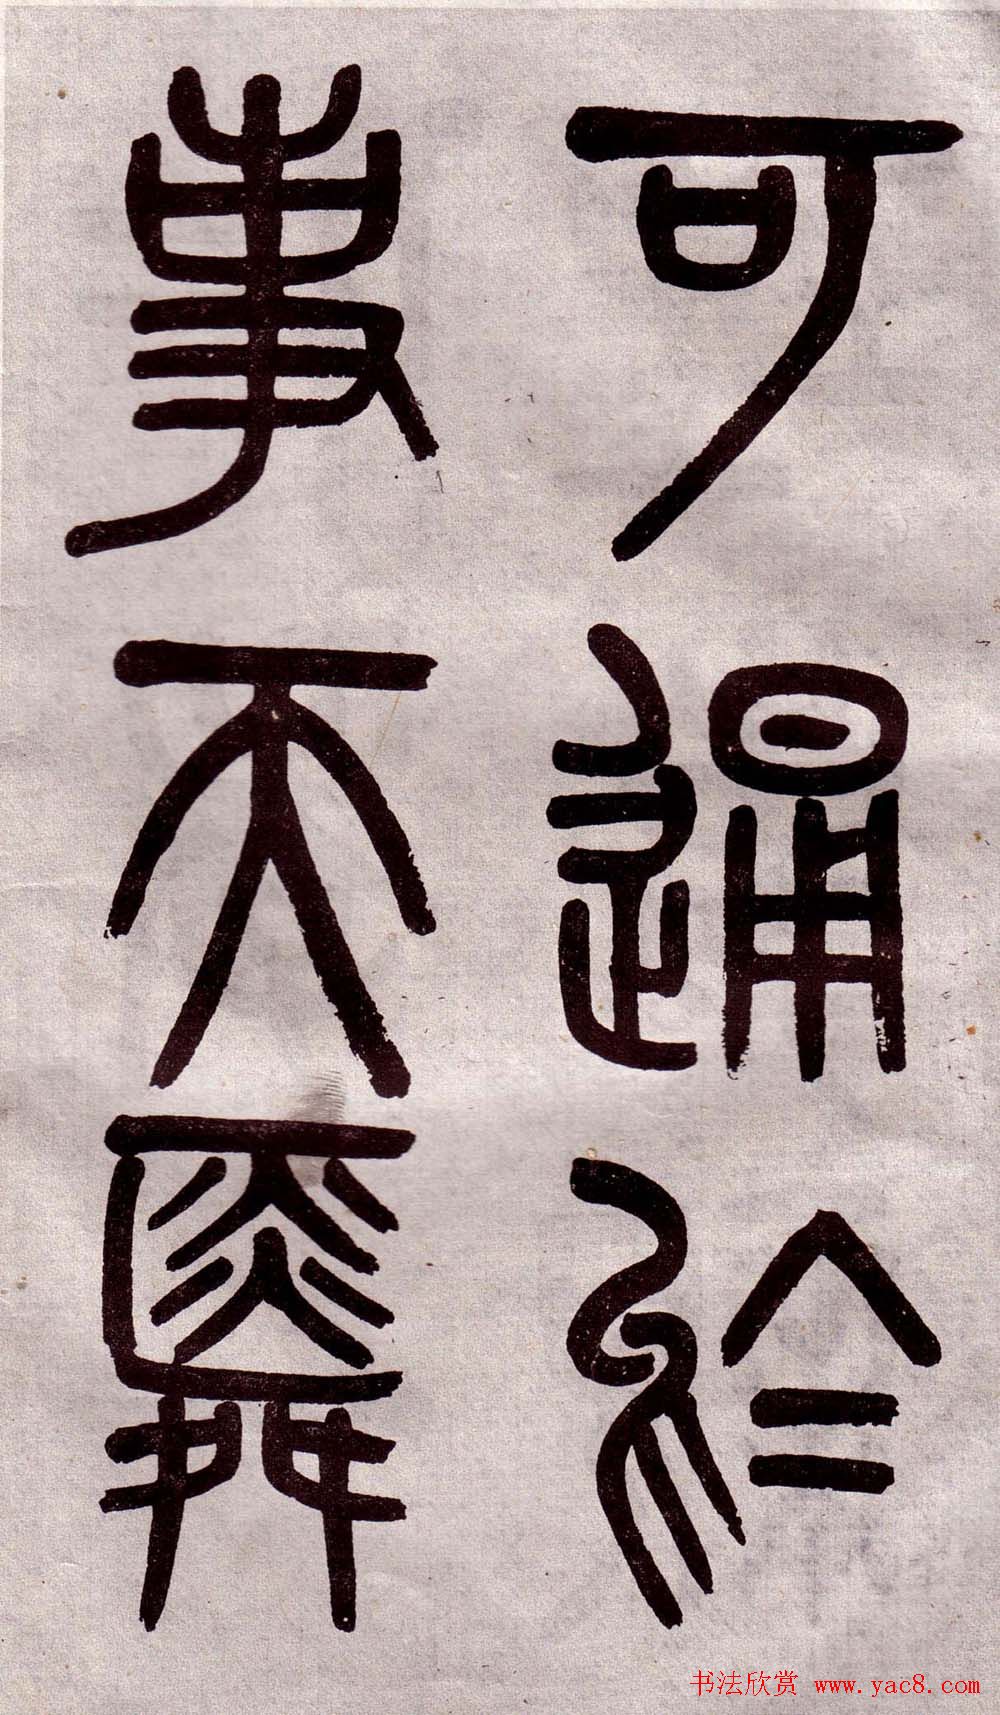 可通於
事天舜
书法欣赏 www.yac8.com